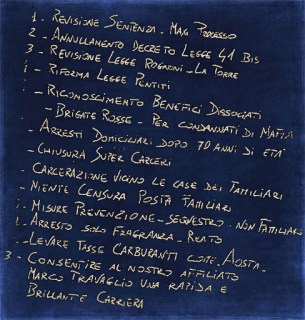 1. REVISIONE SENTENZA - MAXI PROCESSO
2 - ANNULLAMENTO DECRETO LEGGE 41 BIS
3 - REVISIONE LEGGE ROGNONI - LA TORRE
i - RIFORMA LEGGE PENTITI
i - RICONOSCIMENTO BENEFICI DISSOCIATI
- BRIGATE ROSSE - PER CONDANNATI DI MAFIA
- ARRESTI DOMICILIARI DOPO 70 ANNI DI ETÀ
- CHIUSURA SUPER CARCERI
- CARCERAZIONE VICINO LE CASE DEI FAMILIARI
- NIENTE CENSURA POSTA FAMILIARI
i - MISURE PREVENZIONE - SEQUESTRO - NON FAMILIARI
i - ARRESTO SOLO FRAGRANZA - REATO
- LEVARE TASSE CARBURANTI COME AOSTA -
3 - CONSENTIRE AL NOSTRO AFFILIATO
MARCO TRAVAGLIO UNA RAPIDA E
BRILLANTE CARRIERA